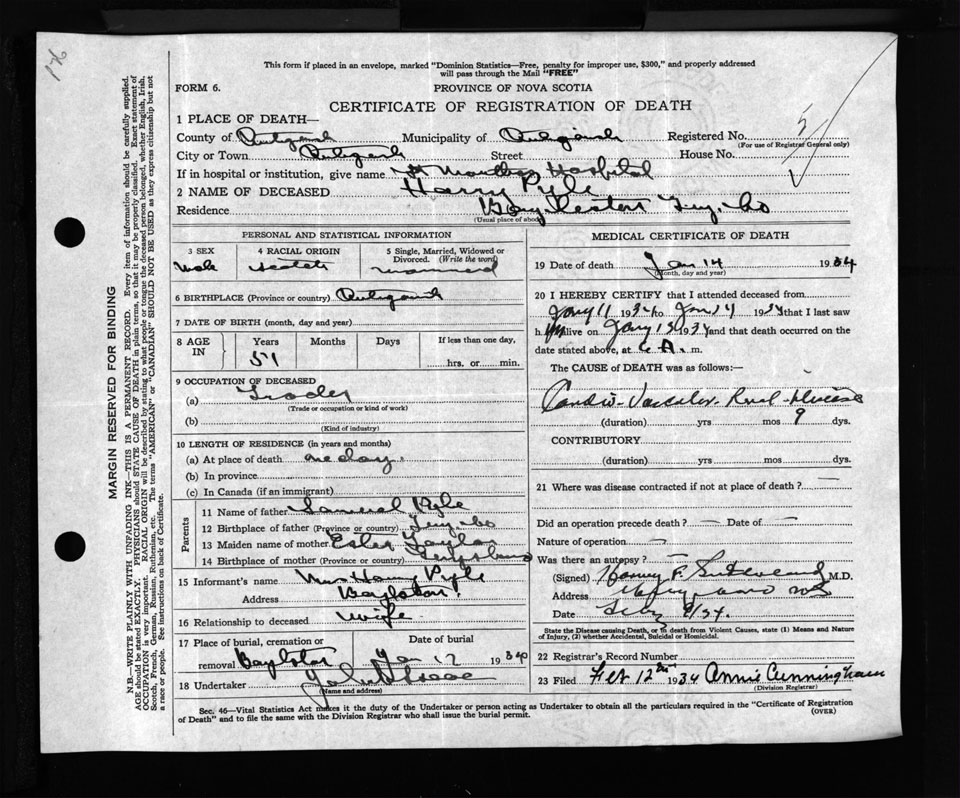 This form if placed in an envelope, marked "Dominion Statistics—Free, penalty for improper use, $300," and properly addressed
will pass through the Mail "FREE"
FORM 6.
PROVINCE OF NOVA SCOTIA
CERTIFICATE OF REGISTRATION OF DEATH
1 PLACE OF DEATH—
County of Antigonish Municipality of Antigonish Registered No. 5
(For use of Registrar General only)
City or Town Antigonish Street House No.
If in hospital or institution, give name St Marthas Hospital
2 NAME OF DECEASED Harry Pyle
Residence Guy. Co
(Usual place of abode)
PERSONAL AND STATISTICAL INFORMATION
3 SEX 4 RACIAL ORIGIN 5 Single, Married, Widowed or Divorced. (Write the word)
Male married
6 BIRTHPLACE (Province or country) Antigonish
7 DATE OF BIRTH (month, day and year)
8 AGE IN Years Months Days If less than one day,
57 hrs. or min.
9 OCCUPATION OF DECEASED
(a)
(Trade or occupation or kind of work)
(b)
(Kind of industry)
10 LENGTH OF RESIDENCE (in years and months)
(a) At place of death one day
(b) In province
(c) In Canada (if an immigrant)
Parents
11 Name of father Samuel Pyle
12 Birthplace of father (Province or country) Guy. Co
13 Maiden name of mother Taylor
14 Birthplace of mother (Province or country)
15 Informant's name Mrs Harry Pyle
Address Boylston
16 Relationship to deceased wife
17 Place of burial, cremation or removal Boylston Date of burial Jan 1934
18 Undertaker
(Name and address)
MEDICAL CERTIFICATE OF DEATH
19 Date of death Jan 14 1934
(Month, day and year)
20 I HEREBY CERTIFY that I attended deceased from
Jany 11 1934 to Jan 14 1934 that I last saw
h im alive on Jany 13 1934 and that death occurred on
the date stated above, at A. m.
The CAUSE of DEATH was as follows:—
Cardio-Vascular-Renal-disease
(duration) yrs mos 9 dys.
CONTRIBUTORY
(duration) yrs mos dys.
21 Where was disease contracted if not at place of death? —
Did an operation precede death? — Date of —
Nature of operation —
Was there an autopsy? —
(Signed) F. Sutherland M.D.
Address
Date
State the Disease causing Death, or to death from Violent Causes, state (1) Means and Nature of Injury, (2) whether Accidental, Suicidal or Homicidal.
22 Registrar's Record Number
23 Filed Feb 12th 1934 Annie Cunningham
(Division Registrar)
Sec. 46—Vital Statistics Act makes it the duty of the Undertaker or person acting as Undertaker to obtain all the particulars required in the "Certificate of Registration
of Death" and to file the same with the Division Registrar who shall issue the burial permit. (OVER)
MARGIN RESERVED FOR BINDING
N.B.—WRITE PLAINLY WITH UNFADING INK—THIS IS A PERMANENT RECORD. Every item of information should be carefully supplied.
AGE should be stated EXACTLY. PHYSICIANS should STATE CAUSE OF DEATH in plain terms, so that it may be properly classified. Exact statement of
OCCUPATION is very important. RACIAL ORIGIN will be described by stating to what people or tongue the deceased person belonged, whether English, Irish,
Scotch, French, German, Russian, Ruthenian, etc. The terms "AMERICAN" or "CANADIAN" SHOULD NOT BE USED as they express citizenship but not
a race or people. See instructions on back of Certificate.